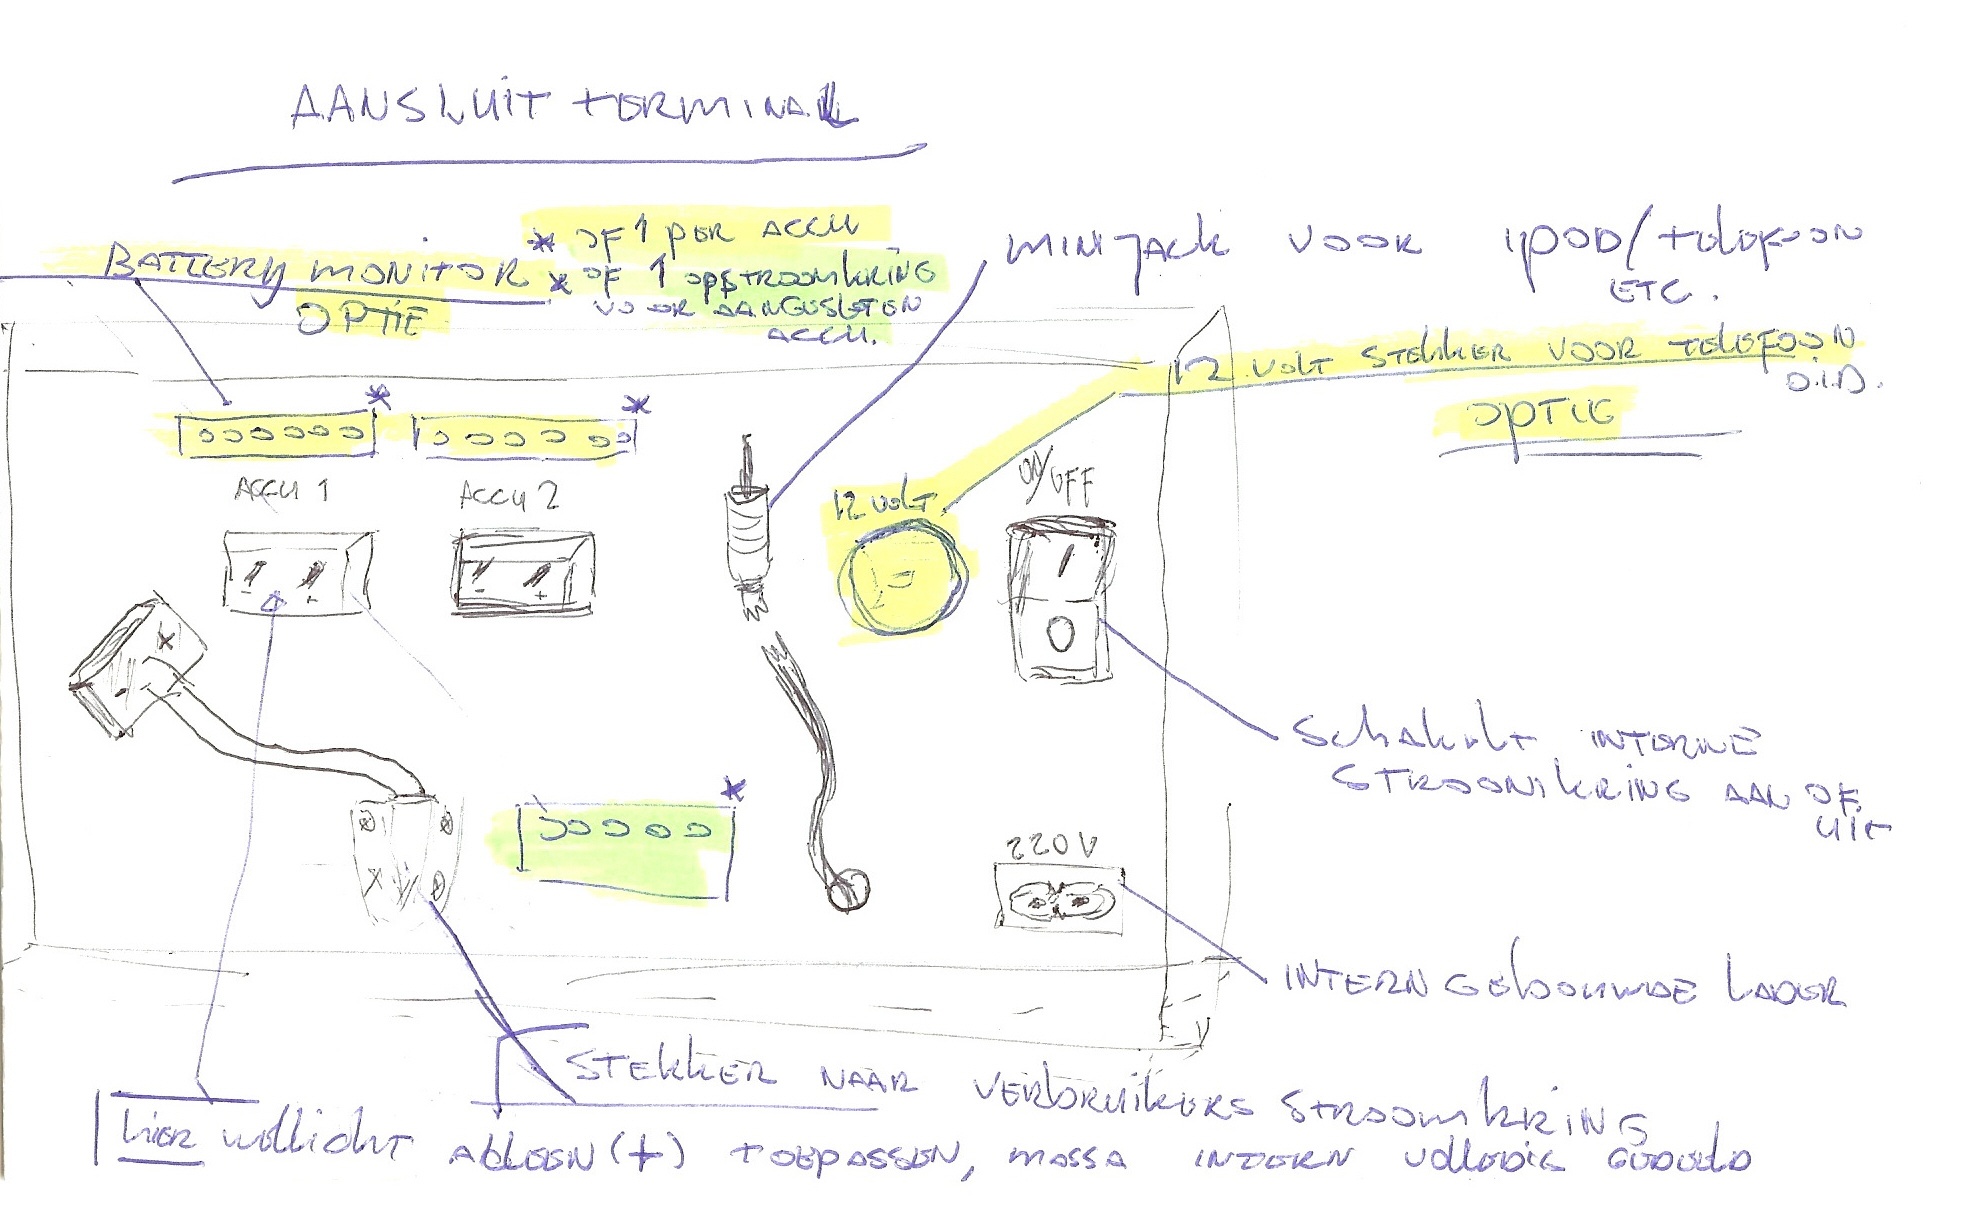 AANSLUIT TERMINAL
BATTERY MONITOR
OPTIE
* OF 1 PER ACCU
* OF 1 OP STROOMKRING
VOOR AANGESLOTEN
ACCU.
MINI JACK VOOR IPOD/TELEFOON
ETC.
12 VOLT STEKKER VOOR TELEFOON
O.I.D.
OPTIE
*
*
ACCU 1
ACCU 2
12 VOLT
ON/OFF
- +
- +
I
O
SCHAKELT INTERNE
STROOMKRING AAN OF
UIT
*
220V
INTERN GEBOUWDE LADER
STEKKER NAAR VERBRUIKERS STROOMKRING
HIER WELLICHT ALLEEN (+) TOEPASSEN, MASSA INTERN VOLLEDIG GEDEELD